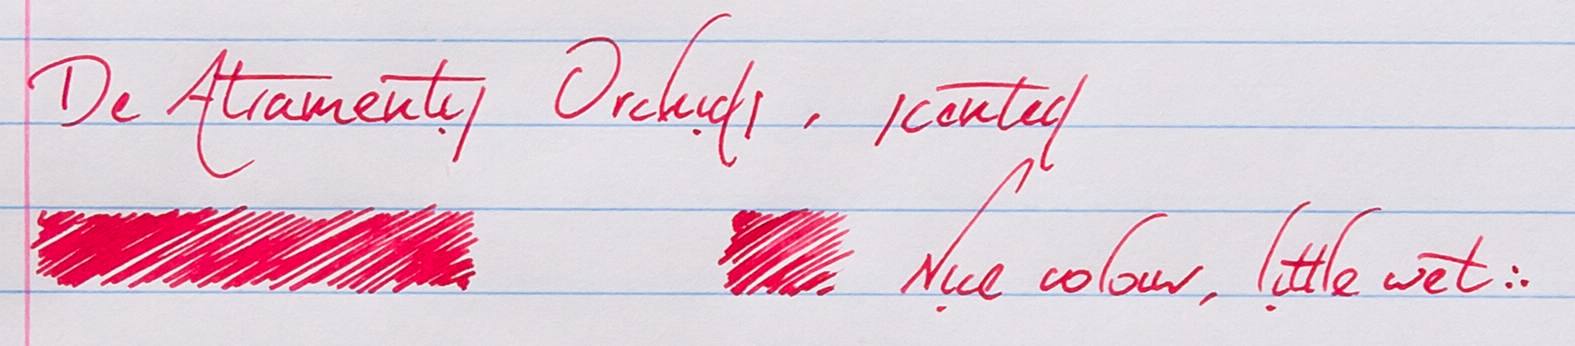 De Atramentis Orchids, scented
Nice colour, little wet :.